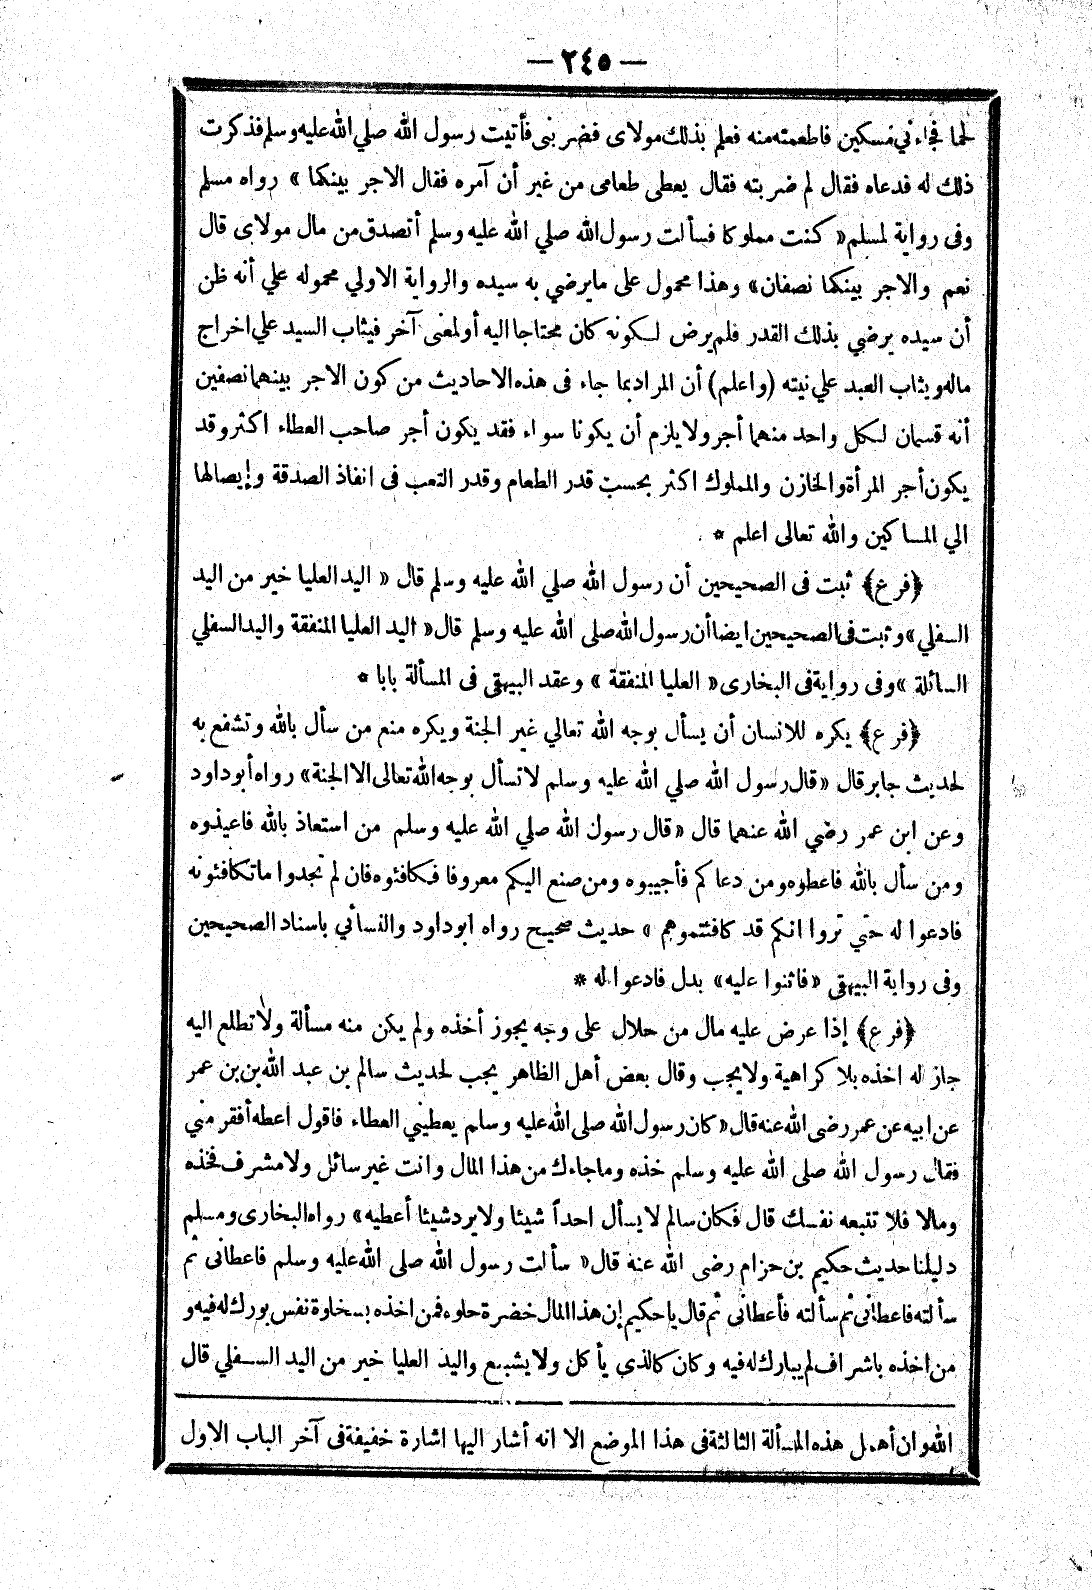 — ٢٤٥ —
لحما فجاءني مسكين فاطعمته منه فعلم بذلك مولاى فضربنى فأتيت رسول الله صلي الله عليه وسلم فذكرت
ذلك له فدعاه فقال لم ضربته فقال يعطى طعامى من غير أن آمره فقال الاجر بينكما » رواه مسلم
وفى رواية لمسلم « كنت مملوكا فسألت رسول الله صلي الله عليه وسلم أتصدق من مال مولاى قال
نعم والاجر بينكما نصفان» وهذا محمول على ما يرضي به سيده والرواية الاولي محموله علي أنه ظن
أن سيده يرضي بذلك القدر فلم يرض لكونه كان محتاجا اليه أو لمعنى آخر فيثاب السيد علي اخراج
ماله ويثاب العبد علي نيته (واعلم) أن المراد بما جاء فى هذه الاحاديث من كون الاجر بينهما نصفين
أنه قسمان لكل واحد منهما أجر ولا يلزم أن يكونا سواء فقد يكون أجر صاحب العطاء اكثر وقد
يكون أجر المرأة والخازن والمملوك اكثر بحسب قدر الطعام وقدر التعب فى انفاذ الصدقة وإيصالها
الي المساكين والله تعالى اعلم *
﴿فرع﴾ ثبت فى الصحيحين أن رسول الله صلي الله عليه وسلم قال « اليد العليا خير من اليد
السفلي» وثبت فى الصحيحين ايضا أن رسول الله صلى الله عليه وسلم قال « اليد العليا المنفقة واليد السفلي
السائلة » وفى رواية فى البخارى « العليا المنفقة » وعقد البيهقى فى المسألة بابا *
﴿فرع﴾ يكره للانسان أن يسأل بوجه الله تعالي غير الجنة ويكره منع من سأل بالله وتشفع به
لحديث جابر قال « قال رسول الله صلي الله عليه وسلم لا تسأل بوجه الله تعالى الا الجنة» رواه أبو داود
وعن ابن عمر رضي الله عنهما قال « قال رسول الله صلي الله عليه وسلم من استعاذ بالله فاعيذوه
ومن سأل بالله فاعطوه ومن دعاكم فأجيبوه ومن صنع اليكم معروفا فكافئوه فان لم تجدوا ما تكافئونه
فادعوا له حتي تروا انكم قد كافئتموهم » حديث صحيح رواه ابو داود والنسائي باسناد الصحيحين
وفى رواية البيهقى « فاثنوا عليه» بدل فادعوا له *
﴿فرع﴾ إذا عرض عليه مال من حلال على وجه يجوز أخذه ولم يكن منه مسألة ولا تطلع اليه
جاز له اخذه بلا كراهية ولا يجب وقال بعض أهل الظاهر يجب لحديث سالم بن عبد الله بن بن عمر
عن ابيه عن عمر رضى الله عنه قال « كان رسول الله صلى الله عليه وسلم يعطيني العطاء فاقول اعطه أفقر مني
فقال رسول الله صلى الله عليه وسلم خذه وما جاءك من هذا المال وانت غير سائل ولا مشرف فخذه
ومالا فلا تتبعه نفسك قال فكان سالم لا يسأل احداً شيئا ولا يرد شيئا أعطيه» رواه البخارى ومسلم
دليلنا حديث حكيم بن حزام رضى الله عنه قال « سألت رسول الله صلى الله عليه وسلم فاعطانى ثم
سألته فاعطانى ثم سألته فأعطانى ثم قال يا حكيم إن هذا المال خضرة حلوه فمن اخذه بسخاوة نفس بورك له فيه و
من اخذه باشراف لم يبارك له فيه وكان كالذي يأكل ولا يشبع واليد العليا خير من اليد السفلي قال
الله وان أهمل هذه المسألة الثالثة فى هذا الموضع الا انه أشار اليها اشارة خفيفة فى آخر الباب الاول